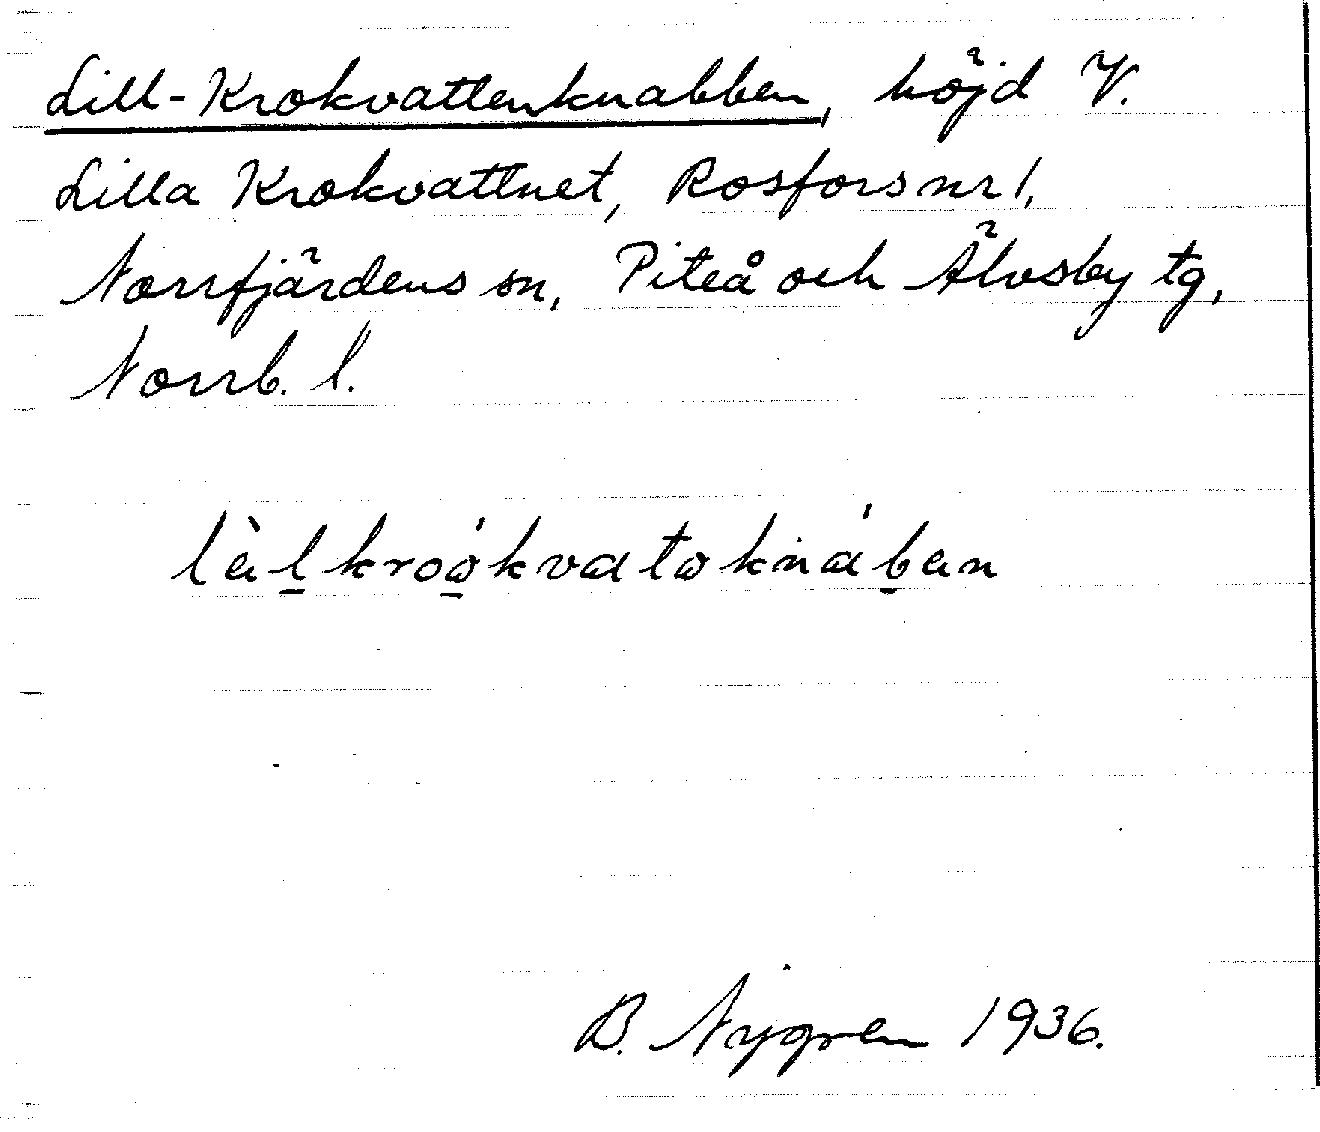 Lill-Krokvattenknabben, höjd V.
Lilla Krokvattnet, Rosfors nr 1,
Norrfjärdens sn, Piteå och Älvsby tg,
Norrb. l.
lèl̲kroo̲̍kvatoknáb̲en
B. Nygren 1936.